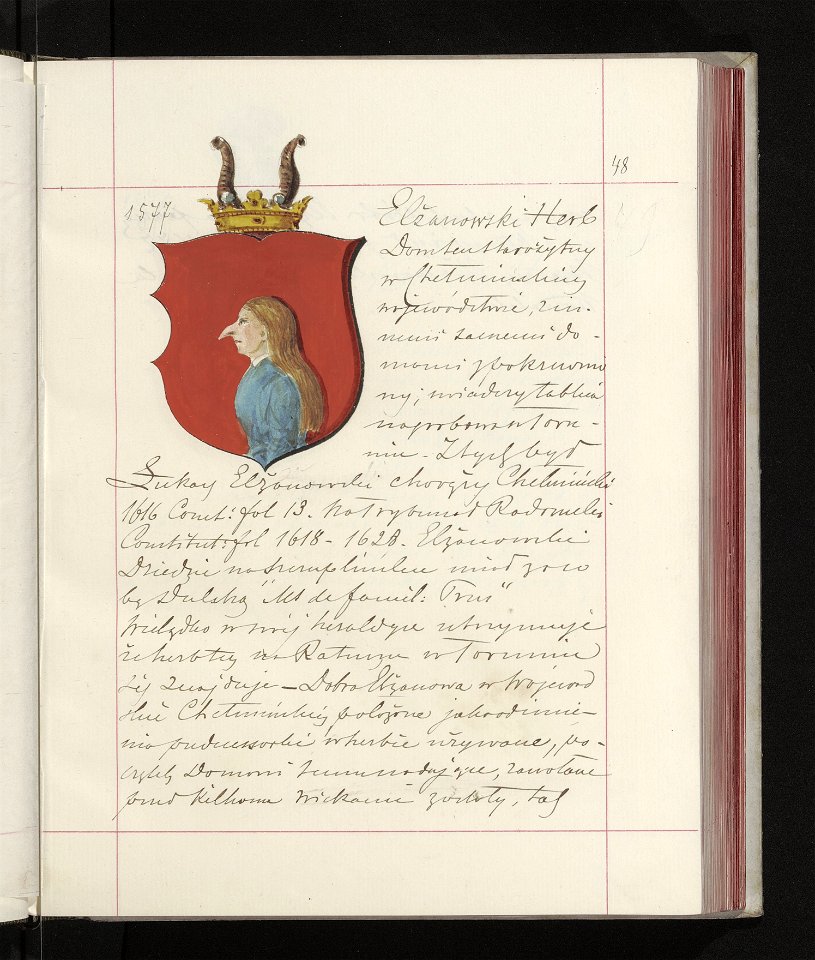 48
1577
Elżanowski Herb
Dom ten starożytny
w Chełmińskiey
województwie, z in-
nemi zacnemi do-
mami spokrewnio
ny; świadczy tablica
nagrobowa w Toru-
niu - Z tych był
Łukasz Elżanowski chorąży Chełmiński
1616 Const: fol 13. Na trybunał Radomski
Constitut: fol 1618 - 1628. Elżanowski
Dziedzic na
by Dulską "Ms de famil: Prus"
Wielądko w swéj heraldyce utrzymuje
że herb ten na Ratuszu w Toruniu
się znajduje - Dobra Elżanowa w Wojewód
stwie Chełmińskiéj położone jako od imie-
nia w herbie używane, po-
czątek Domowi temu nadające, zawołane
przed kilkoma wiekami zostały, tak